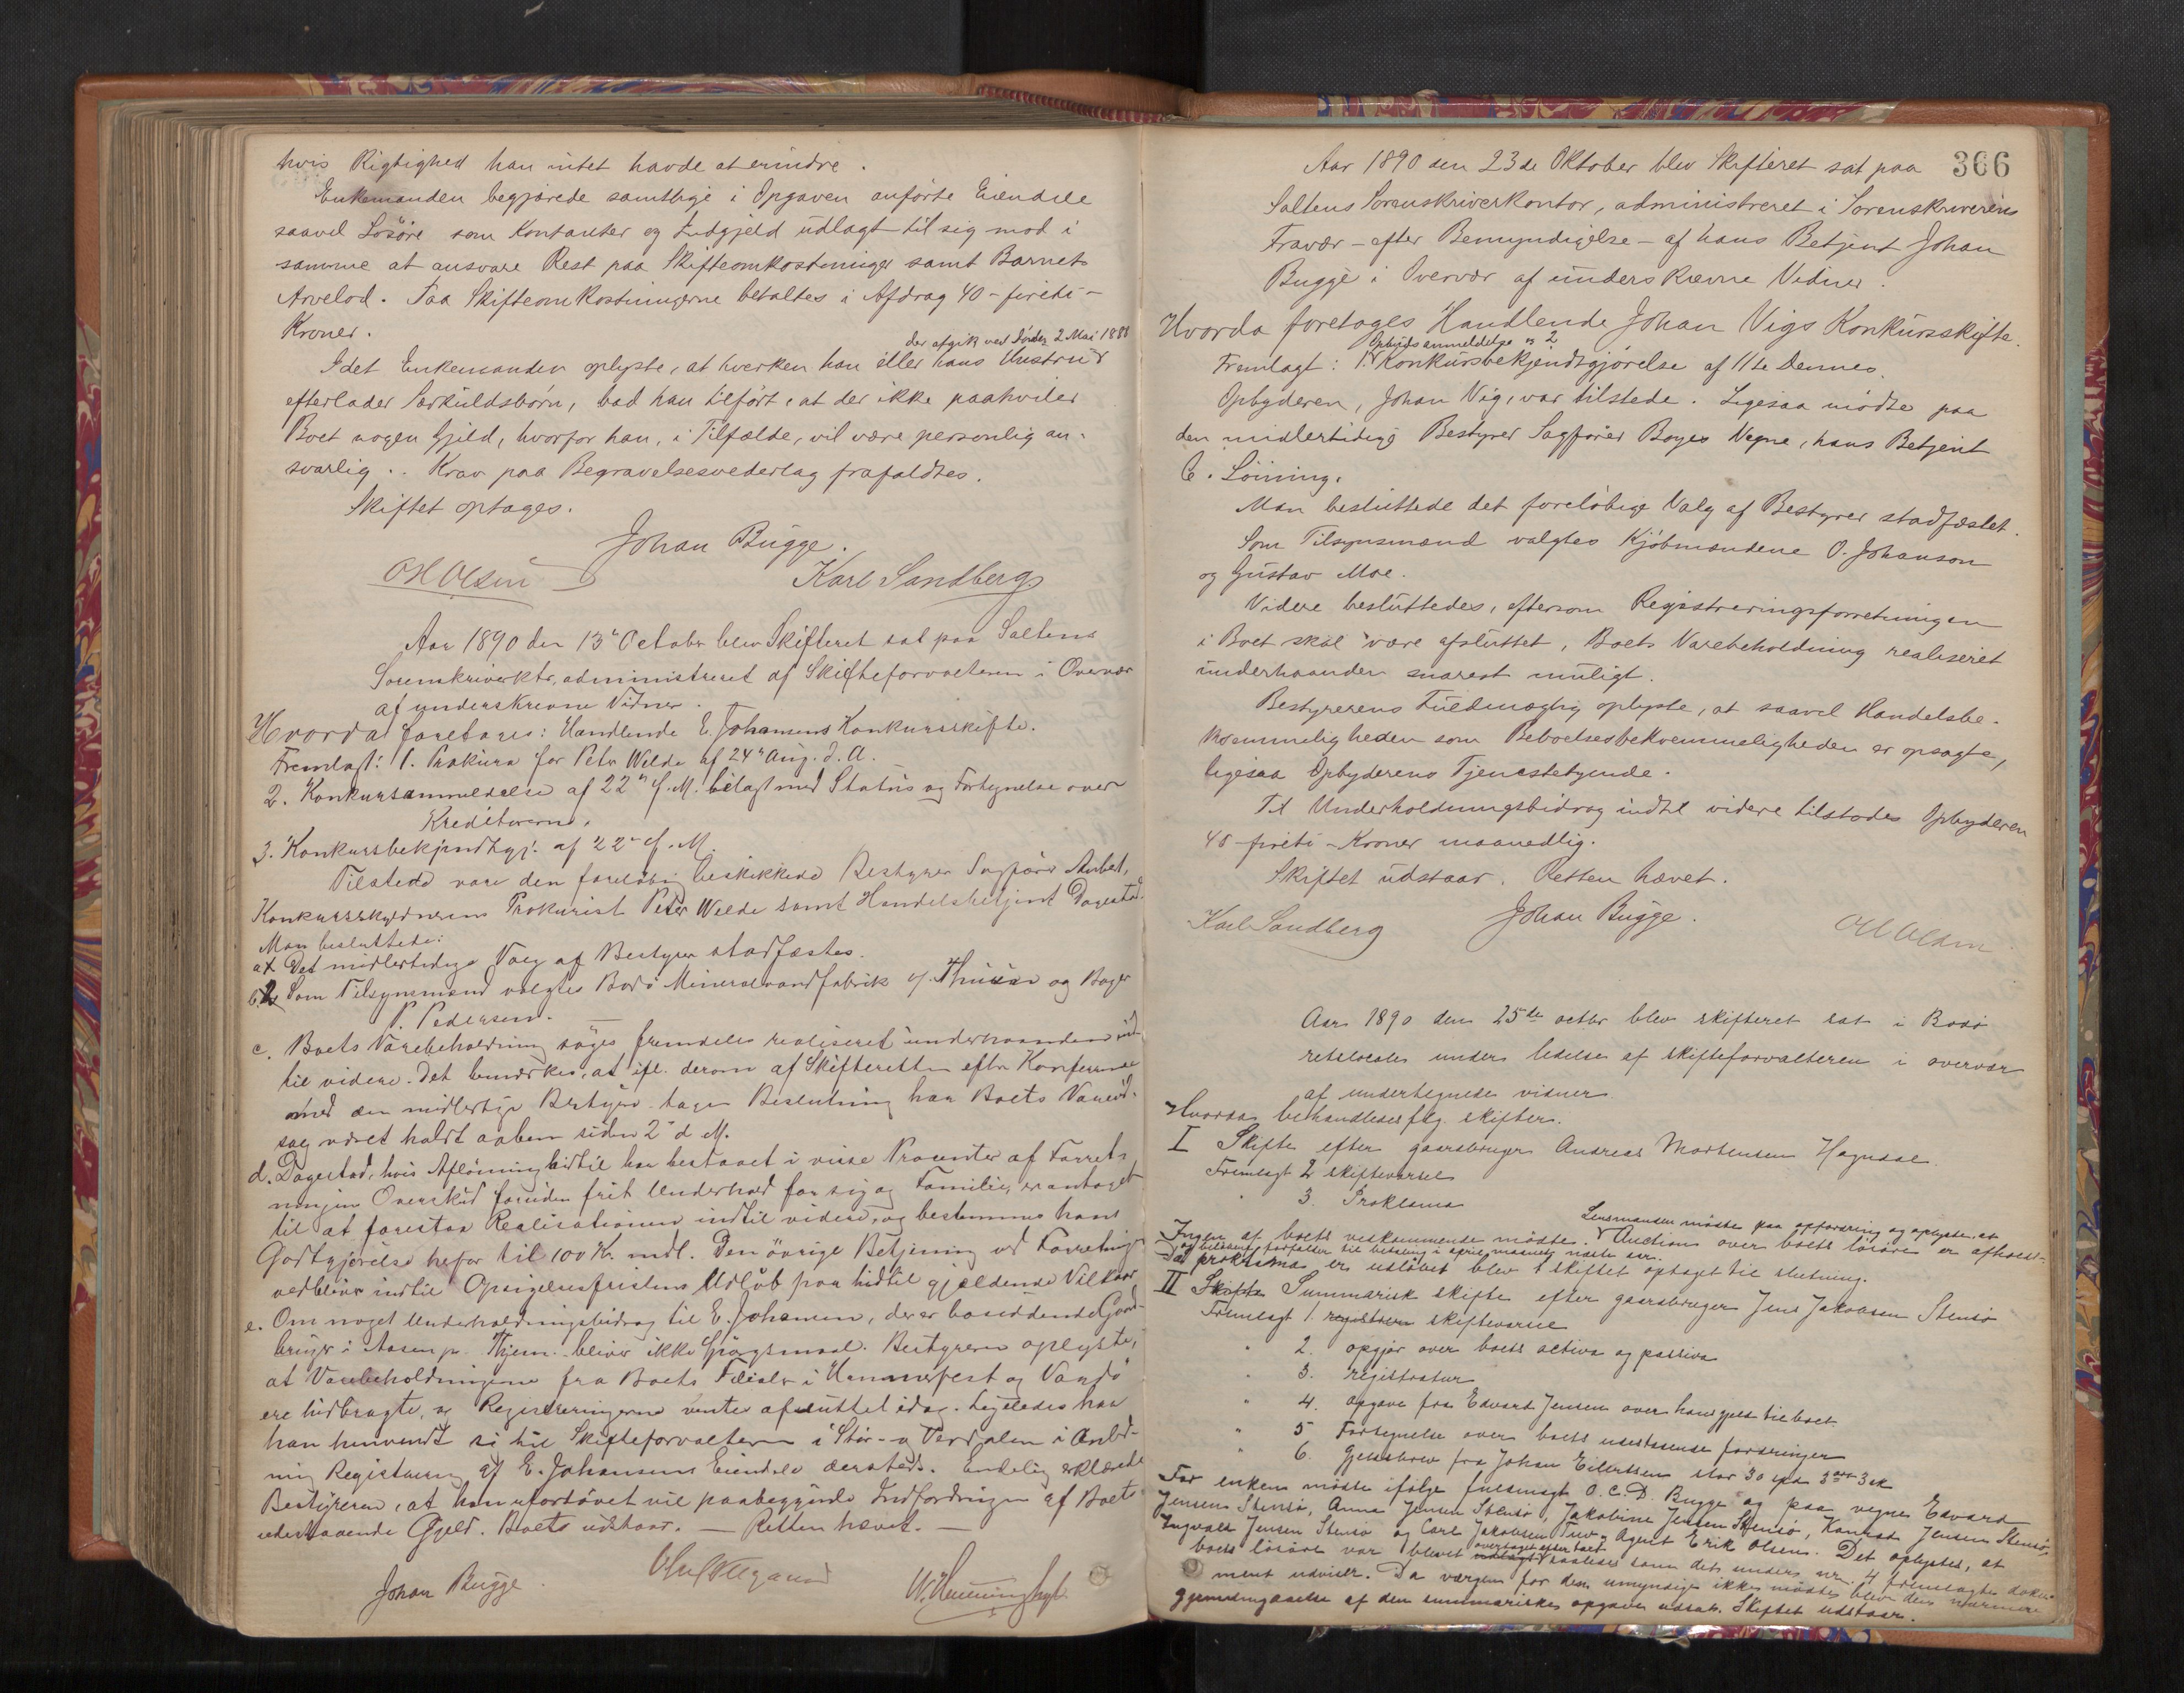 hvis Rigtighed han intet havde at erindre.
Enkemanden begjærede samtlige i Opgaven anførte Eiendele
saavel Løsøre som Kontanter og Indgjeld udlagt til sig mod i
samme at ansvare Rest paa Skifteomkostninger samt Barnets
Arvelod. Paa Skifteomkostningerne betaltes i Afdrag 40 - firti -
Kroner.
der afgik ved Døden 2 Mai 1888
Idet Enkemanden oplyste, at hverken han eller hans Hustru
efterlader Særkuldsbørn, bad han tilført, at der ikke paahviler
Boet nogen Gjeld, hvorfor han, i Tilfælde, vil være personlig an-
svarlig. Krav paa Begravelsesvederlag frafaldtes.
Skiftet optages.
Johan Bugge.
O H Olsen Karl Sandberg
Aar 1890 den 13de October blev Skifteret sat paa Saltens
Sorenskriverktr, administreret af Skifteforvalteren i Overvær
af underskrevne Vidner.
Hvorda foretages: Handlende E. Johansens Konkursskifte.
Fremlagt: 1. Prokura for Peter Welde af 24de Aug. d. A.
2. Konkursanmeldelse af 22de f. M. bilagt med Status og Fortegnelse over
Kreditorerne.
3. Konkursbekjendtgj. af 22de f. M.
Tilstede vare den foreløbig beskikkede Bestyrer Sagfører
Konkursskyldnerens Prokurist Peter Welde samt Handelsbetjent Dagestad.
Man besluttede:
a. Det midlertidige Valg af Bestyrer stadfæstes.
b. Som Tilsynsmænd valgtes Bodø Mineralvandfabrik v/ og Bager
P. Pedersen.
c. Boets Varebeholdning søges fremdeles realiseret underhaanden ind
til videre. Det bemærkes, at ifl. derom af Skifteretten efter Konferense
med den midlertige Bestyrer tagen Beslutning har Boets Vareud-
salg været holdt aaben siden 2de d. M.
d. Dagestad, hvis Aflønning hidtil har bestaaet i visse Procenter af Forret-
ningens Overskud foruden frit Underhold for sig og Familie, er antaget
til at forestaa Realisationen indtil videre, og bestemmes hans
Godtgjørelse herfor til 100 Kr. mdl. Den øvrige Betjening ved Forretningen
vedbliver indtil Opsigelsesfristens Udløb paa hidtil gjældende Vilkaar.
e. Om noget Underholdningsbidrag til E. Johansen, der er bosiddende Gaard-
bruger i Aasen pr. Thjem. bliver ikke Spørgsmaal. Bestyreren oplyste,
at Varebeholdningerne fra Boets Filialer i Hammerfest og Vardø
ere hidbragte, og Registreringerne ventes afsluttet idag. Ligeledes har
han henvendt si til Skifteforvalteren i Stør- og Verdalen i Anled-
ning Registrering af E. Johansens Eiendele dersteds. Endelig erklærede
Bestyreren, at han ufortøvet vil paabegynde Indfordringen af Boets
udestaaende Gjeld. Boets udstaar. - Retten hævet. -
Johan Bugge.
366
Aar 1890 den 23de Oktober blev Skifteret sat paa
Saltens Sorenskriverkontor, administreret i Sorenskriverens
Fravær - efter Bemyndigelse - af hans Betjent Johan
Bugge i Overvær af underskrevne Vidner.
Hvorda foretages Handlende Johan Vigs Konkursskifte.
Opbudsanmeldelse og 2
Fremlagt: 1. Konkursbekjendtgjørelse af 11te Dennes.
Opbyderen, Johan Vig, var tilstede. Ligesaa mødte paa
den midlertidige Bestyrer Sagfører Boyes Vegne, hans Betjent
C. Lønning.
Man besluttede det foreløbige Valg af Bestyrer stadfæstet.
Som Tilsynsmænd valgtes Kjøbmændene O. Johanson
og Gustav Moe.
Videre besluttedes, eftersom Registreringsforretningen
i Boet skal være afsluttet, Boets Varebeholdning realiseret
underhaanden snarest muligt.
Bestyrerens Fuldmægtig oplyste, at saavel Handelsbe-
kvemmeligheden som Beboelsesbekvemmeligheden er opsagte,
ligesaa Opbyderens Tjenestetyende.
Til Underholdningsbidrag indtil videre tilstodes Opbyderen
40 - firti - Kroner maanedlig.
Skiftet udstaar. Retten hævet.
Karl Sandberg Johan Bugge. O H Olsen
Aar 1890 den 25de octbr blev skifteret sat i Bodø
retslocale under ledelse af skifteforvalteren i overvær
af undertegnede vidner.
Hvorda behandledes flg. skifter.
I Skifte efter gaardbruger Andreas Mortensen Hagndal.
Fremlagt 2 skiftevarsel
" 3. Proklama
Lensmanden mødte paa opfordring og oplyste, at
Ingen af boets vedkommende mødte. Auction over boets løsøre er afholdt
og beløbene forfalder til betaling i april maaned næste aar.
Da proklama er udløbet blev skiftet optaget til slutning.
II Skifte Summarisk skifte efter gaardbruger Jens Jakobsen Stensø
Fremlagt 1. registrere skiftevarsel
" 2. opgjør over boets activa og passiva
" 3. registratur
" 4. opgave fra Edvard Jensen over hans gjeld til boet
" 5 Fortegnelse over boets udestaaende fordringer
" 6. Gjeldsbrev fra Johan Eilertsen stor 30 spd 3 ort 3 sk
For enken mødte ifølge fuldmagt O. C. D. Bugge og paa vegne Edvard
Jensen Stensø, Anna Jensen Stensø, Jakobine Jensen Stensø, Konrad Jensen Stensø,
Ingvald Jensen Stensø og Carl Jakobsen Agent Erik Olsen. Det oplystes, at
overtaget efter boet
boets løsøre var blevet udlagt saaledes som det under nr. 4 fremlagte doku-
ment udviser. Da værgen for den umyndige ikke mødte blev den nærmere
gjennemgaaelse af den summariske opgave udsat. Skiftet udstaar.